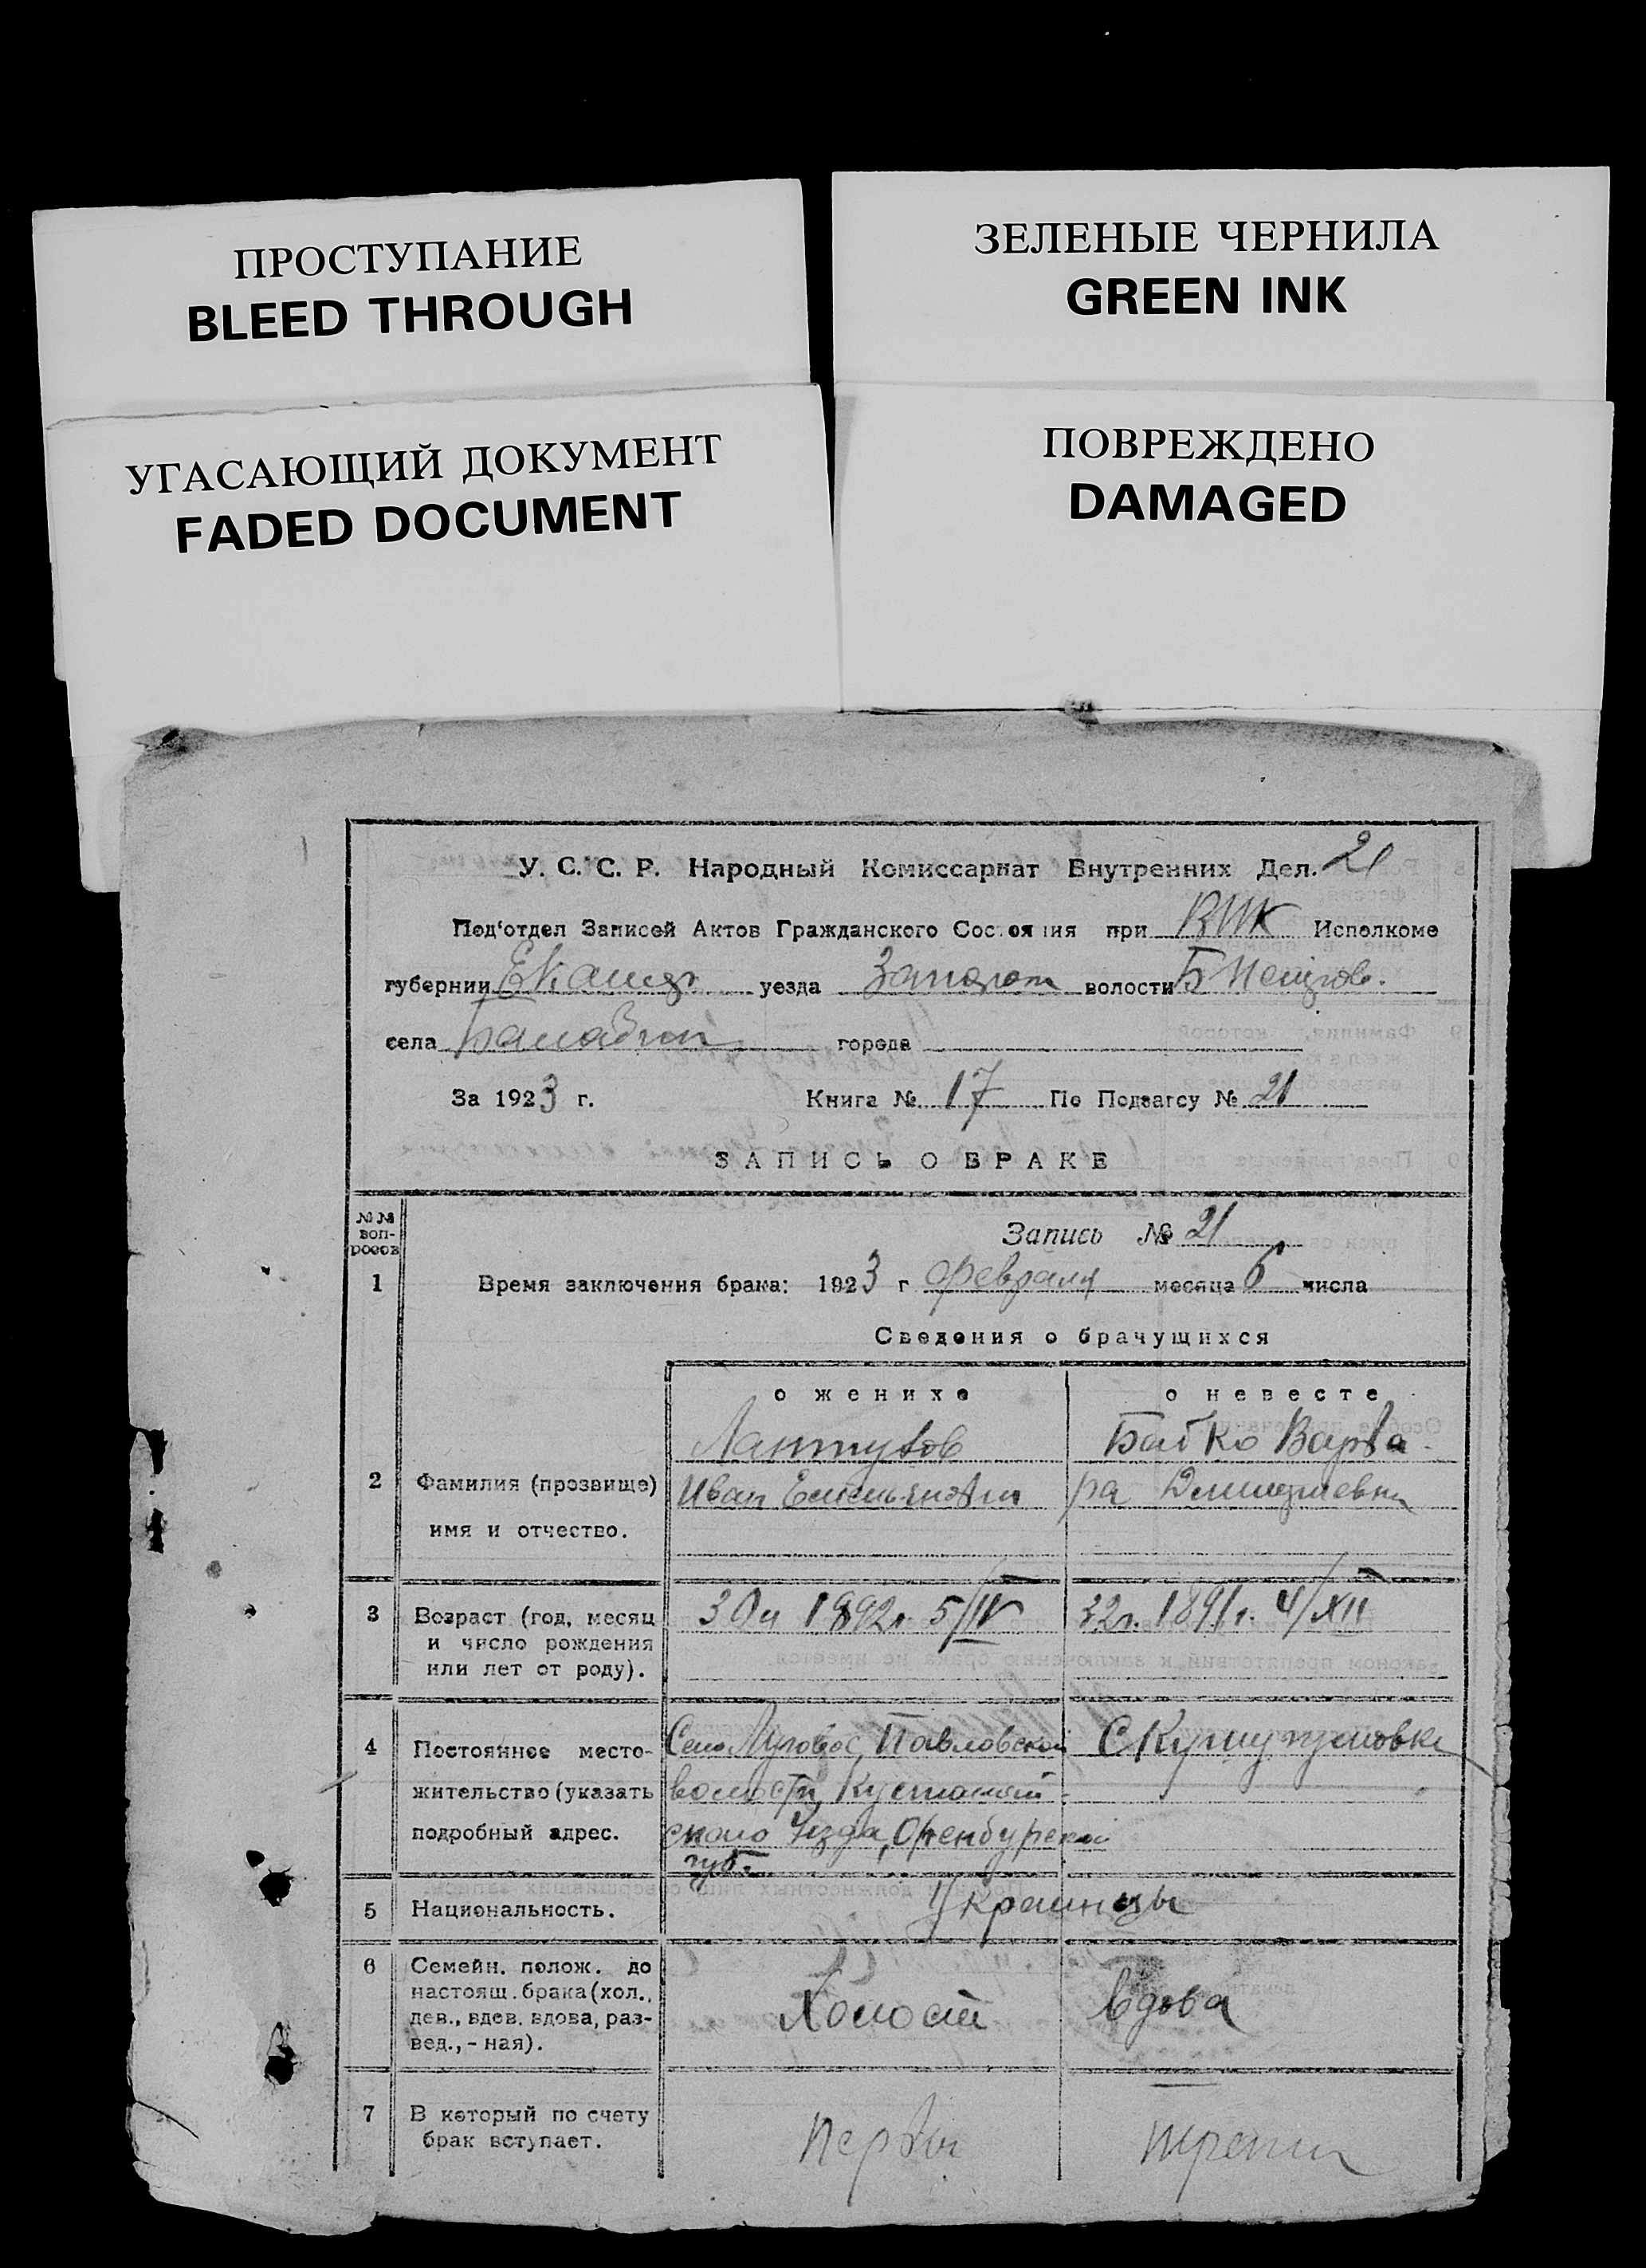 ПРОСТУПАНИЕ
BLEED THROUGH
ЗЕЛЕНЫЕ ЧЕРНИЛА
GREEN INK
УГАСАЮЩИЙ ДОКУМЕНТ
FADED DOCUMENT
ПОВРЕЖДЕНО
DAMAGED
У. С. С. Р. Народный Комиссариат Внутренних Дел. 21
Под'отдел Записей Актов Гражданского Состояния при ВИК Исполкоме
губернии уезда Запорож волости
села города
За 1923 г. Книга № 17 По Подзагсу № 21
ЗАПИСЬ О БРАКЕ
№№ вопросов
Запись № 21
1 Время заключения брака: 1923 г февраля месяца 6 числа
Сведения о брачущихся
о женихе о невесте
Лантухов Бабко Варва
2 Фамилия (прозвище) Иван Емельянович ра Дмитриевна
имя и отчество.
3 Возраст (год, месяц 30л 1892г. 5/IV 32г. 1891г. 4/XII
и число рождения
или лет от роду).
4 Постоянное место- Село Луговое, Павловской С Кушугумовка
жительство (указать волости, Кустанай
подробный адрес. ского Уезда, Оренбургской
губ.
5 Национальность. Украинцы
6 Семейн. полож. до
настоящ. брака (хол.,
дев., вдов. вдова, раз- Холост вдова
вед., - ная).
7 В который по счету Первый третий
брак вступает.